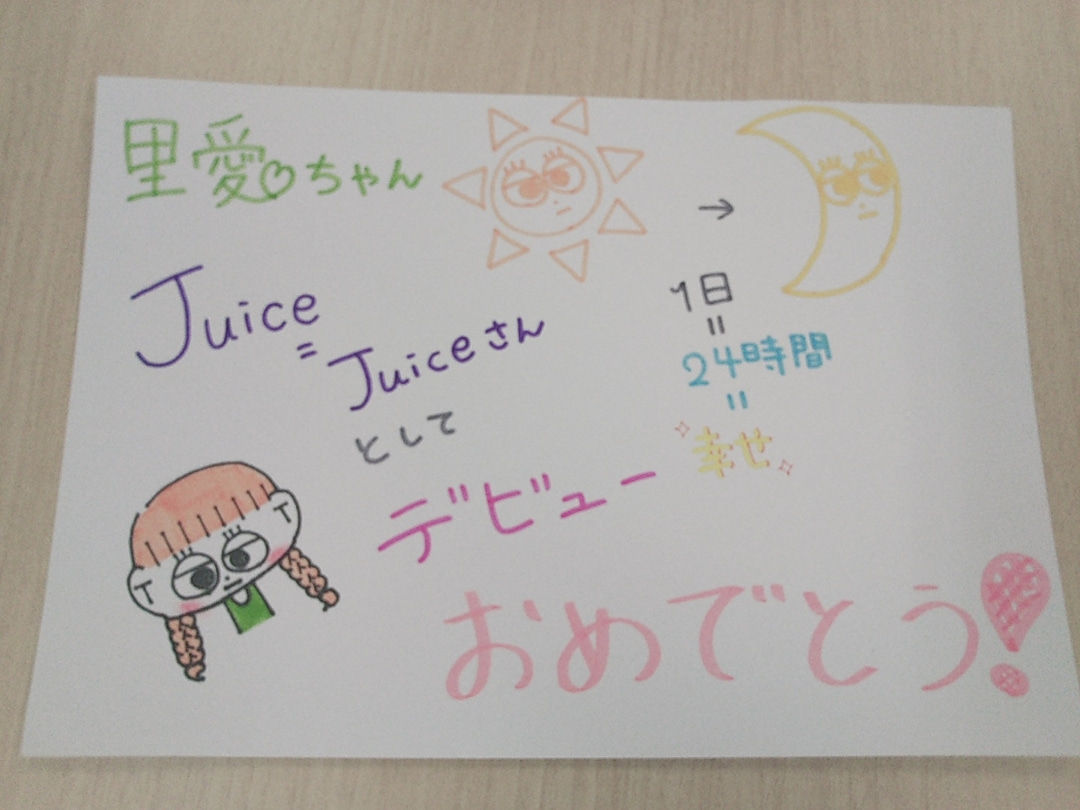 里愛♡ちゃん
Juice
=
Juiceさん
として
デビュー
おめでとう!
→
1日
=
24時間
=
幸せ